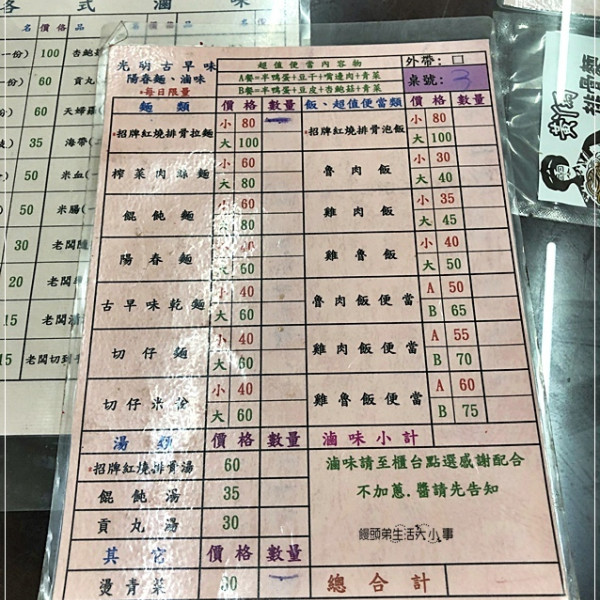 各式滷味
名 價 格 品 名
份) 100 杏鮑
一份) 60 貢丸
60 天婦羅
35 海帶
50 米血(一
50 米腸(一
30 老闆
20 老闆
15 老闆
15 老闆切到手
光明古早味
陽春麵、滷味
*每日限量
超值便當內容物
A餐=半鴨蛋+豆干+嘴邊肉+青菜
B餐=半鴨蛋+豆皮+杏鮑菇+青菜
外帶:口
桌號: 3
麵類 價格 數量 飯、超值便當類 價格 數量
*招牌紅燒排骨拉麵 小 80 *招牌紅燒排骨泡飯 小 80
大 100 大 100
榨菜肉絲麵 小 60 魯肉飯 小 30
大 80 大 40
餛飩麵 小 60 雞肉飯 小 35
大 80 大 45
陽春麵 小 40 雞魯飯 小 40
大 60 大 50
古早味乾麵 小 40 魯肉飯便當 A 50
大 60 B 65
切仔麵 小 40 雞肉飯便當 A 55
大 60 B 70
切仔米粉 小 40 雞魯飯便當 A 60
大 60 B 75
湯類 價格 數量 滷味小計
*招牌紅燒排骨湯 60
餛飩湯 35
貢丸湯 30
滷味請至櫃台點選感謝配合
不加蔥.醬請先告知
饅頭弟生活大小事
其它 價格 數量
燙青菜 30 總合計